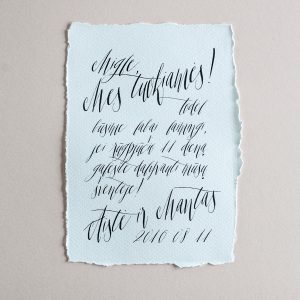 Migle,
Mes tuokiamės!
todėl
būsime labai laimingi,
jei rugpjūčio 11 dieną
galėsite dalyvauti mūsų
šventėje!
Aistė ir Mantas
2010 08 11